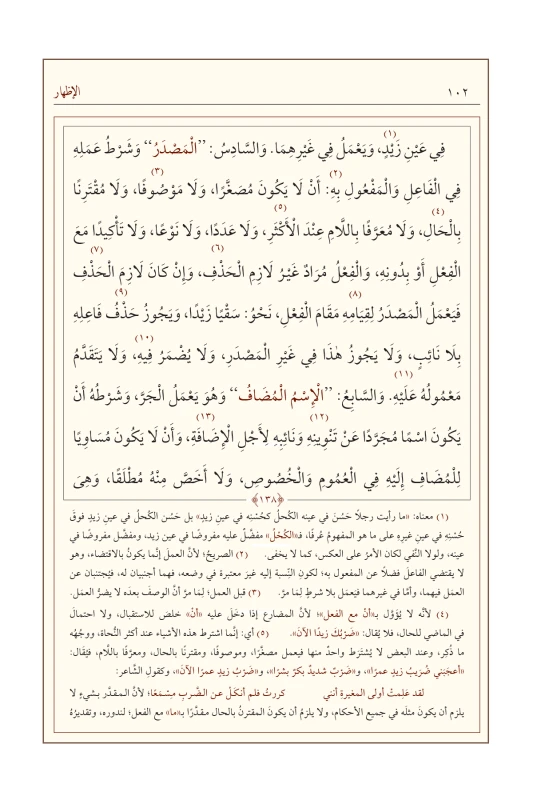 ١٠٢
الإظهار
فِي عَيْنِ زَيْدٍ(١)، وَيَعْمَلُ فِي غَيْرِهِمَا. وَالسَّادِسُ: ”الْمَصْدَرُ“ وَشَرْطُ عَمَلِهِ
فِي الْفَاعِلِ وَالْمَفْعُولِ بِهِ(٢): أَنْ لَا يَكُونَ مُصَغَّرًا، وَلَا مَوْصُوفًا(٣)، وَلَا مُقْتَرِنًا
بِالْحَالِ(٤)، وَلَا مُعَرَّفًا بِاللَّامِ عِنْدَ الْأَكْثَرِ(٥)، وَلَا عَدَدًا، وَلَا نَوْعًا، وَلَا تَأْكِيدًا مَعَ
الْفِعْلِ أَوْ بِدُونِهِ، وَالْفِعْلُ مُرَادٌ غَيْرُ لَازِمِ الْحَذْفِ(٦)، وَإِنْ كَانَ لَازِمَ الْحَذْفِ(٧)
فَيَعْمَلُ الْمَصْدَرُ لِقِيَامِهِ مَقَامَ الْفِعْلِ(٨)، نَحْوُ: سَقْيًا زَيْدًا، وَيَجُوزُ حَذْفُ فَاعِلِهِ(٩)
بِلَا نَائِبٍ، وَلَا يَجُوزُ هٰذَا فِي غَيْرِ الْمَصْدَرِ، وَلَا يُضْمَرُ فِيهِ(١٠)، وَلَا يَتَقَدَّمُ
مَعْمُولُهُ عَلَيْهِ. وَالسَّابِعُ: ”الْإِسْمُ الْمُضَافُ“(١١) وَهُوَ يَعْمَلُ الْجَرَّ، وَشَرْطُهُ أَنْ
يَكُونَ اسْمًا مُجَرَّدًا عَنْ تَنْوِينِهِ(١٢) وَنَائِبِهِ لِأَجْلِ الْإِضَافَةِ(١٣)، وَأَنْ لَا يَكُونَ مُسَاوِيًا
لِلْمُضَافِ إِلَيْهِ فِي الْعُمُومِ وَالْخُصُوصِ، وَلَا أَخَصَّ مِنْهُ مُطْلَقًا، وَهِىَ
﴿١٣٨﴾
(١) معناه: «ما رأيت رجلًا حَسُنَ في عينه الكُحلُ كحُسْنِه في عينِ زيدٍ» بل حَسُن الكُحلُ في عينِ زيدٍ فوقَ
حُسْنِه في عينِ غيرِه على ما هو المفهومُ عُرفًا، فـ«الكُحْلُ» مفضَّلٌ عليه مفروضًا في عين زيد، ومفضَّل مفروضًا في
عينه، ولولا النَّفي لكان الأمرُ على العكس، كما لا يخفى. (٢) الصريحُ؛ لأنَّ العملَ إنَّما يكونُ بالاقتضاء، وهو
لا يقتضي الفاعلَ فضلًا عن المفعول به؛ لكونِ النِّسبة إليه غيرَ معتبرة في وضعه، فهما أجنبيان له، فيُجتنبان عن
العمل فيهما، وأمَّا في غيرهما فيَعمَل بلا شرطٍ لِمَا مرَّ. (٣) قبل العمل؛ لِمَا مرَّ أنَّ الوصفَ بعدَه لا يضرُّ العملَ.
(٤) لأنَّه لا يُؤَوَّل بـ«أنْ مع الفعلِ»؛ لأنَّ المضارع إذا دخلَ عليه «أنْ» خلص للاستقبال، ولا احتمالَ
في الماضي للحال، فلا يُقال: «ضَرْبُكَ زيدًا الآنَ». (٥) أي: إنَّما اشترط هذه الأشياء عند أكثر النُّحاة، ووجْهُه
ما ذُكِر، وعند البعض لا يُشْتَرَط واحدٌ منها فيعمل مصغَّرًا، وموصوفًا، ومقترنًا بالحال، ومعرَّفًا باللَّام، فيُقال:
«أعجَبَني ضُرَيبُ زيدٍ عمرًا»، و«ضَرْبٌ شديدٌ بكرٌ بشرًا»، و«ضَرْبُ زيدٍ عمرًا الآنَ»، وكقولِ الشَّاعر:
لقد عَلِمتْ أولى المغيرةِ أنني كررتُ فلم أنكَلْ عنِ الضَّربِ مِسْمَعًا؛ لأنَّ المقدَّر بشيءٍ لا
يلزم أن يكونَ مثلَه في جميع الأحكام، ولا يلزمُ أن يكونَ المقترنُ بالحال مقدَّرًا بـ«ما» مع الفعل؛ لندوره، وتقديرُهُ